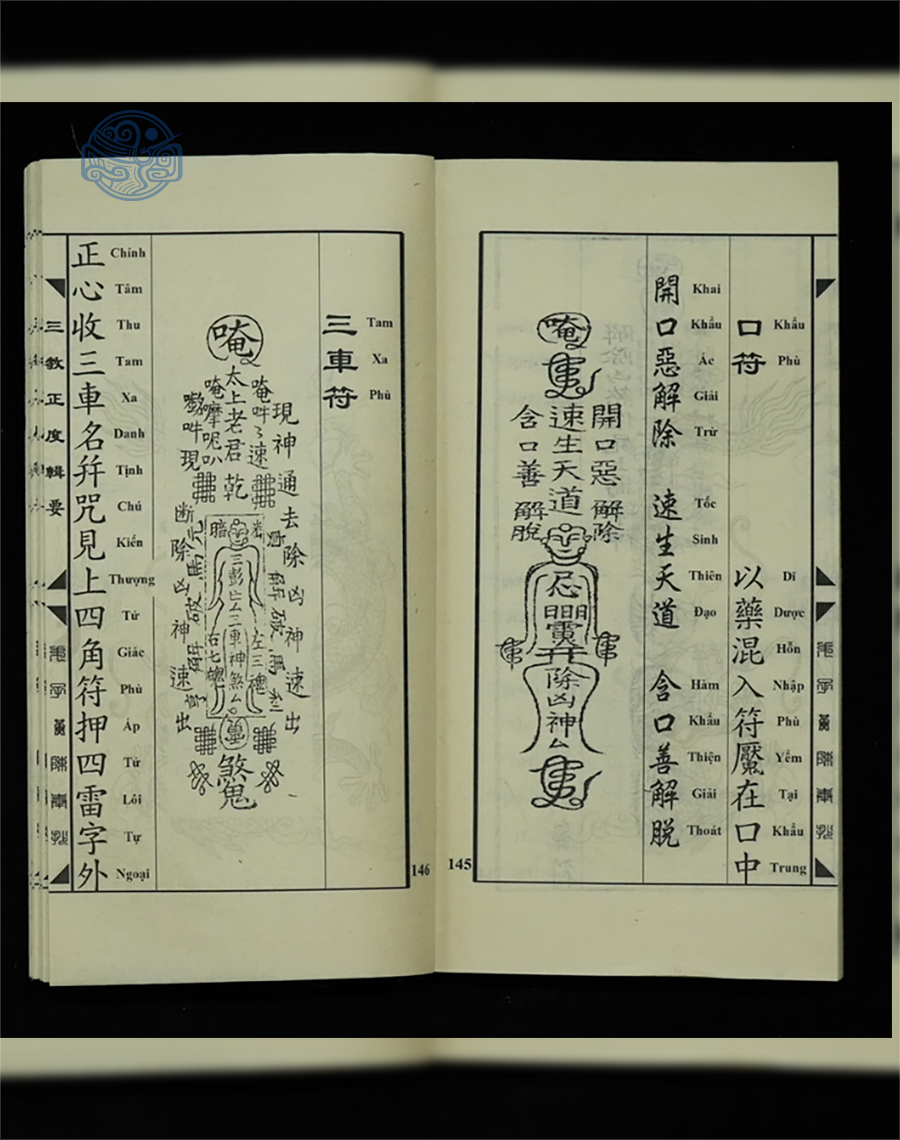 口符
Khẩu Phù
以藥混入符魘在口中
Dĩ Dược Hỗn Nhập Phù Yểm Tại Khẩu Trung
開口惡解除
Khai Khẩu Ác Giải Trừ
速生天道
Tốc Sinh Thiên Đạo
含口善解脫
Hàm Khẩu Thiện Giải Thoát
唵
開口惡解除
速生天道
含口善解脫
除凶神厶
145
三車符
Tam Xa Phù
唵
現神通去除凶神速出
唵吽
速
太上老君乾
唵嚤呢叭
吽現
断除凶神速出
三彭
三車神煞厶
左三魂
右七魄
煞鬼
146
正心收三車名幷咒見上四角符押四雷字外
Chính Tâm Thu Tam Xa Danh Tịnh Chú Kiến Thượng Tứ Giác Phù Áp Tứ Lôi Tự Ngoại
三教正度輯要